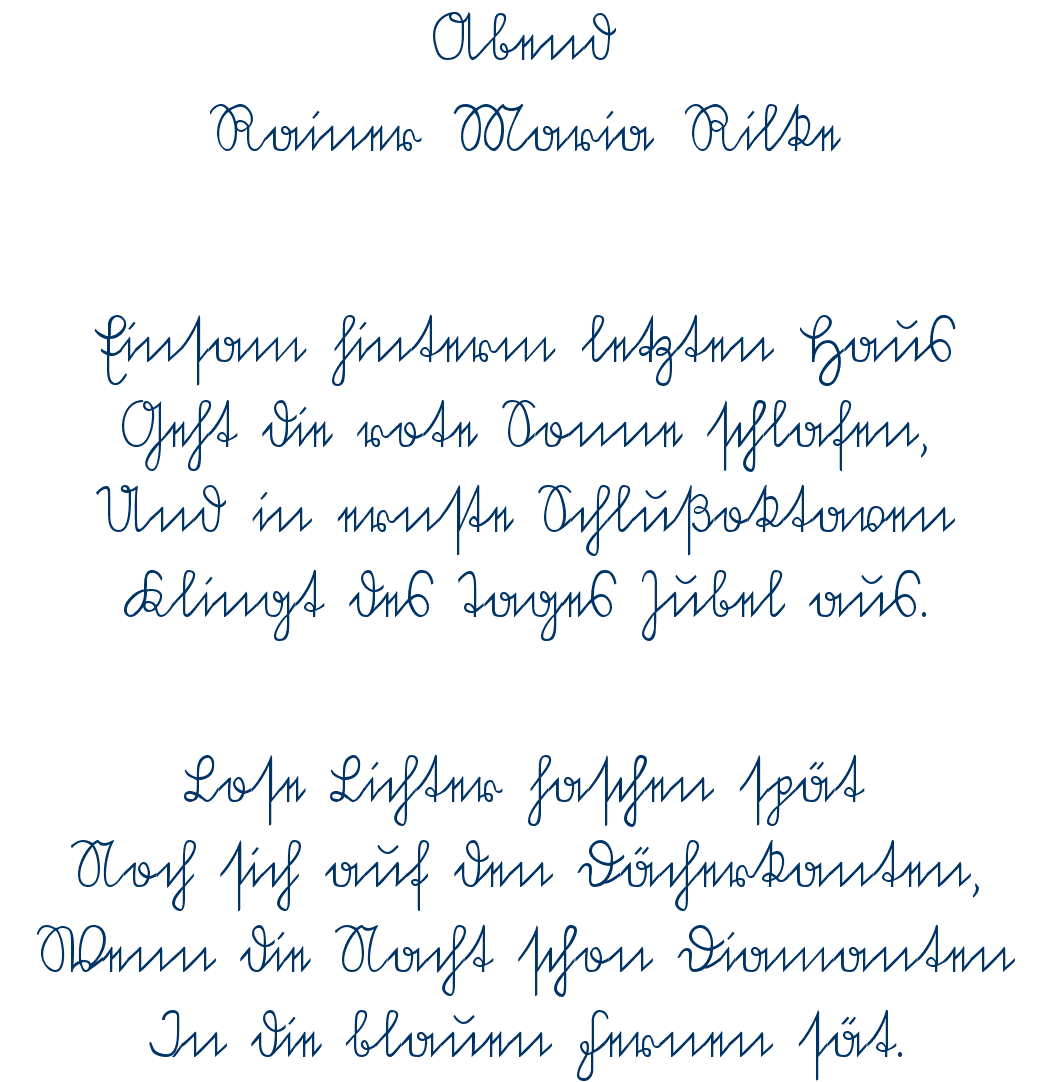 Abend
Rainer Maria Rilke
Einsam hinterm letzten Haus
Geht die rote Sonne schlafen,
Und in ernste Schlußoktaven
Klingt des Tages Jubel aus.
Lose Lichter haschen spät
Noch sich auf den Dächerkanten,
Wenn die Nacht schon Diamanten
In die blauen Fernen sät.